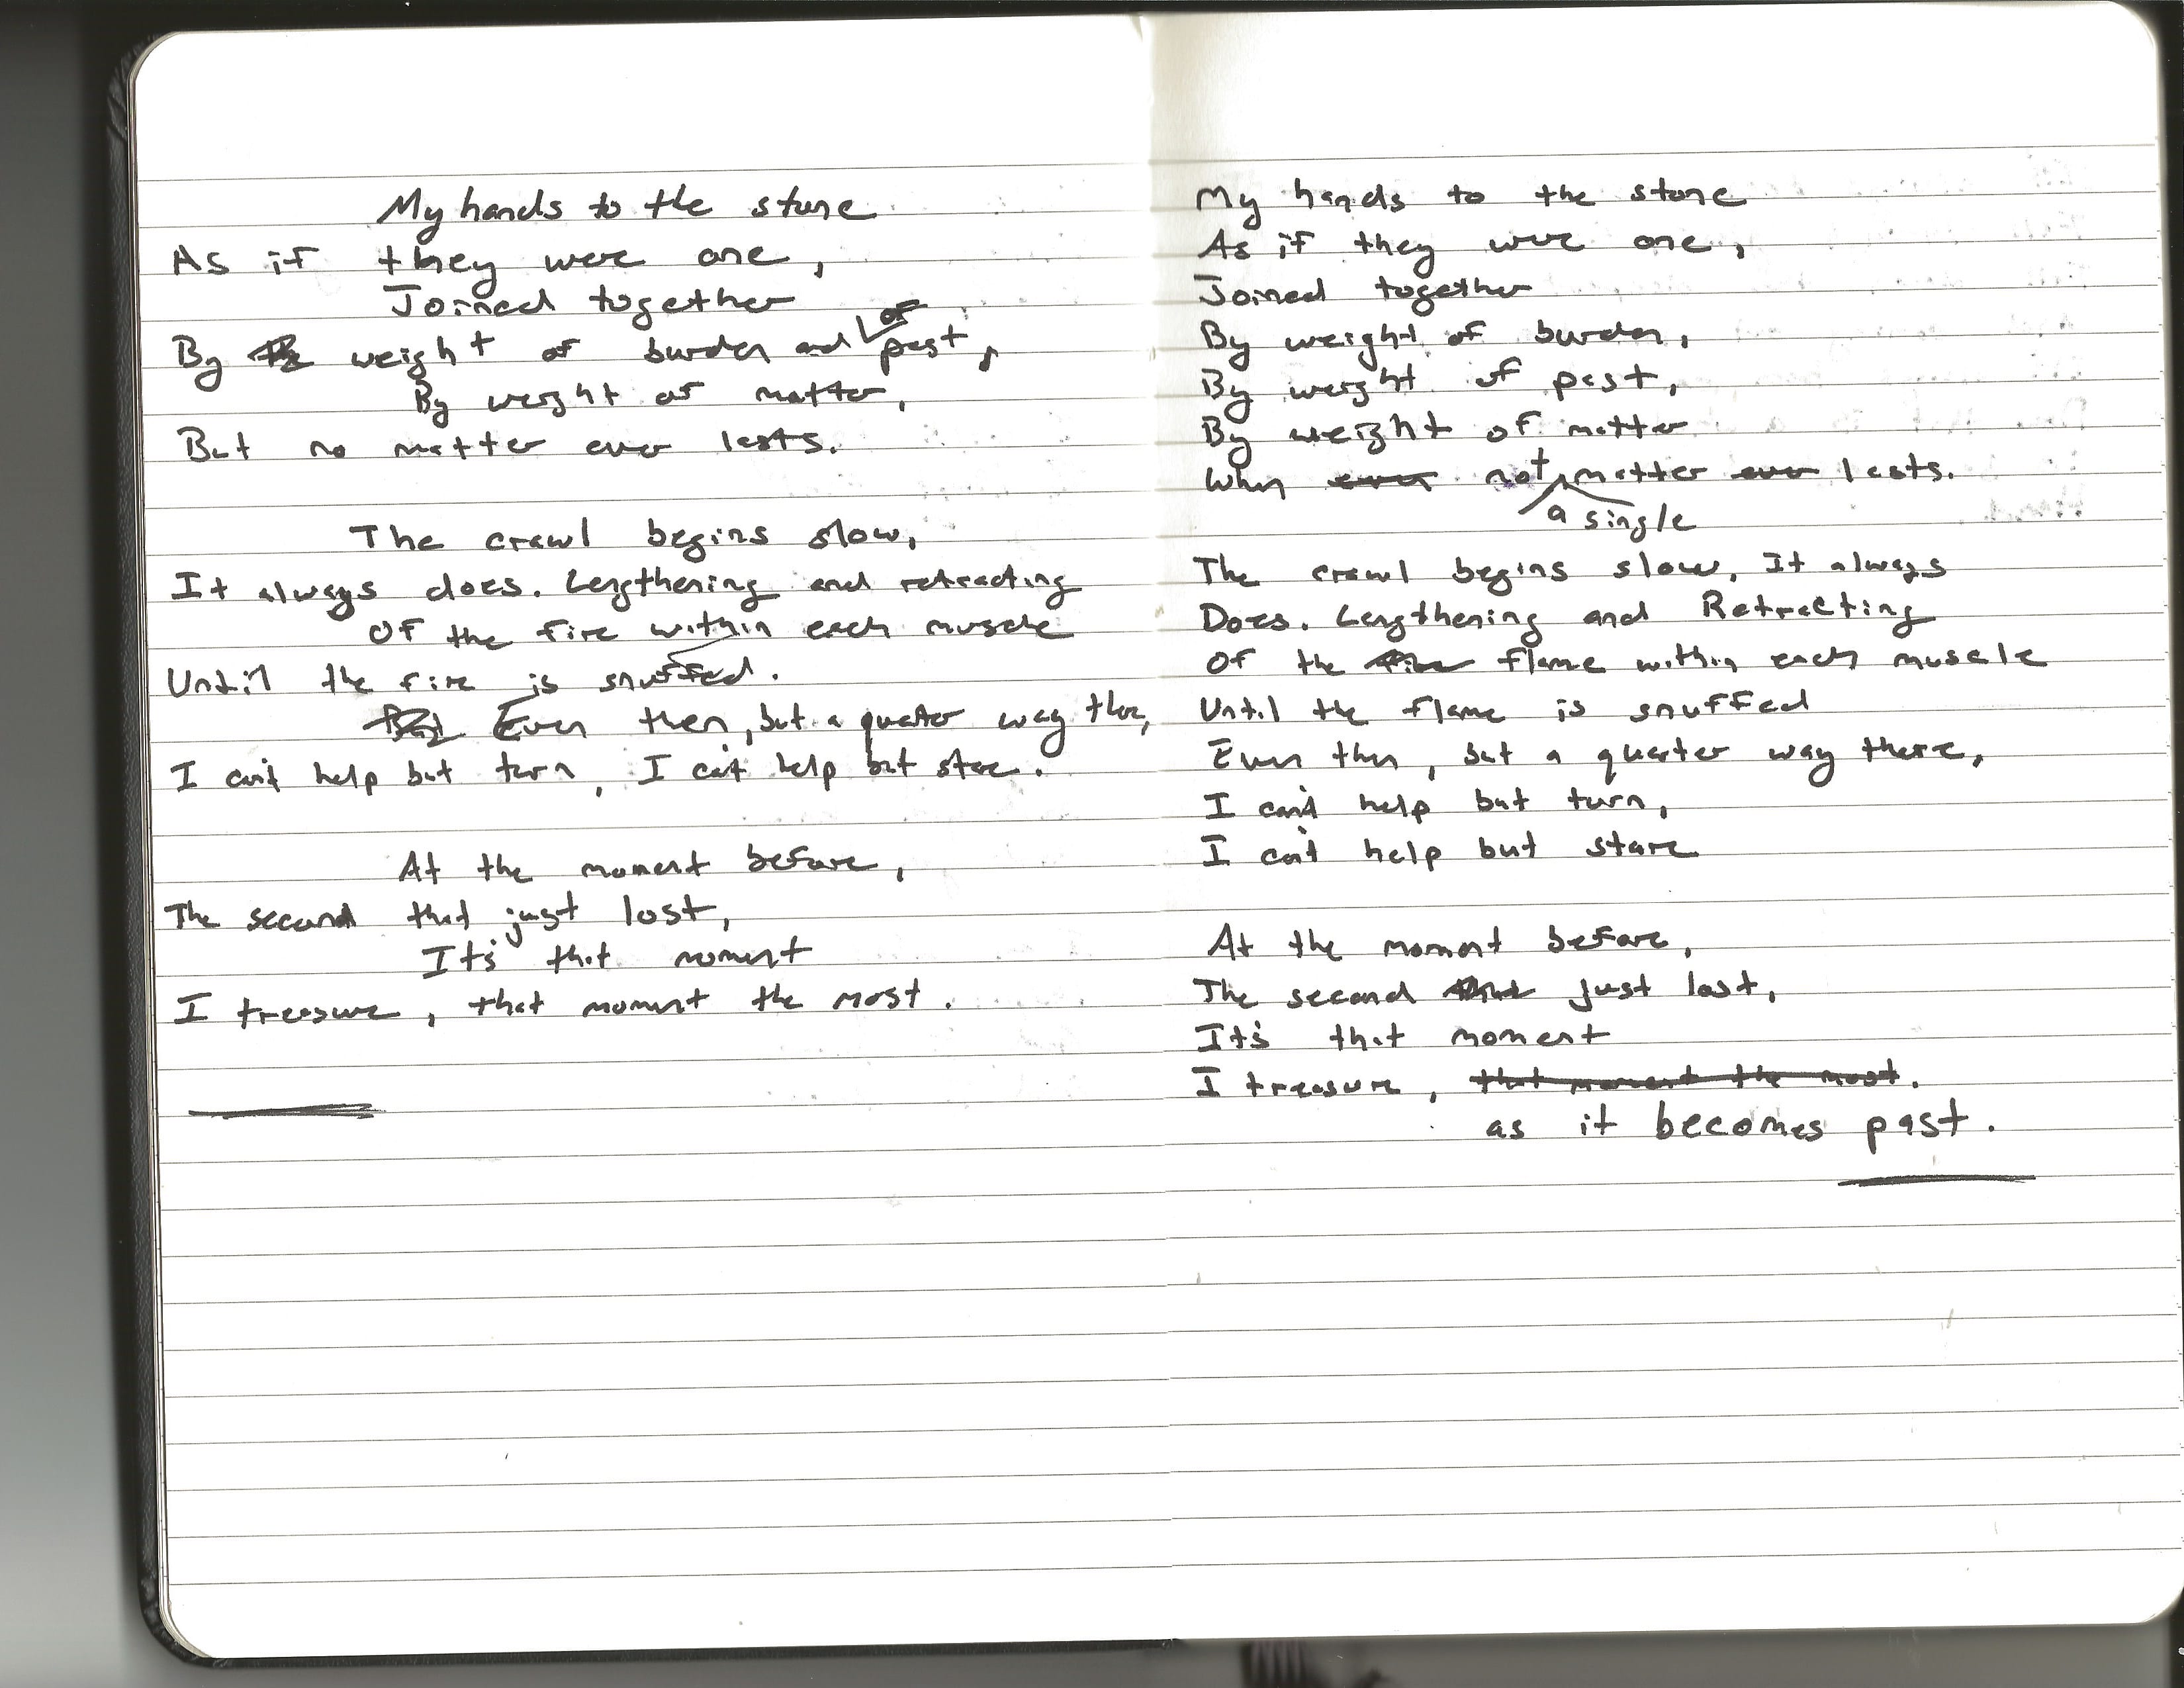 My hands to the stone
As if they were one,
Joined together
By weight of burden and of past,
By weight of matter,
But no matter ever lasts.
The crawl begins slow,
It always does. Lengthening and retracting
Of the fire within each muscle
Until the fire is snuffed.
Even then, but a quater way ther,
I can't help but turn, I can't help but stare.
At the moment before,
The second that just lost,
It's that moment
I treasure, that moment the most.
My hands to the stone
As if they were one,
Joined together
By weight of burden,
By weight of past,
By weight of matter
When ever not matter ever lasts.
a single
The crawl begins slow, It always
Does. Lengthening and Retracting
Of the fire flame within each muscle
Until the flame is snuffed
Even then, but a quarter way there,
I can't help but turn,
I can't help but stare
At the moment before,
The second that just lost,
It's that moment
I treasure, that moment the most.
as it becomes past.